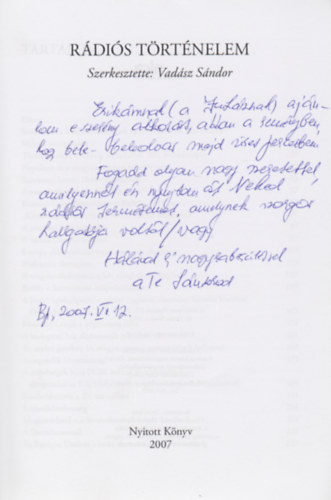 RÁDIÓS TÖRTÉNELEM
Szerkesztette: Vadász Sándor
Erikámnak (a ajánlom e szerény alkotást, abban a reményben,
hogy bele-beleolvas majd
Fogadd olyan nagy szeretettel
amilyennel én nyújtom át Neked
rádiós termésemet, amelynek szorgos
hallgatója voltál/vagy
Hálával és nagyrabecsüléssel
a Te Sándorod
Bp, 2007. VI. 12.
Nyitott Könyv
2007